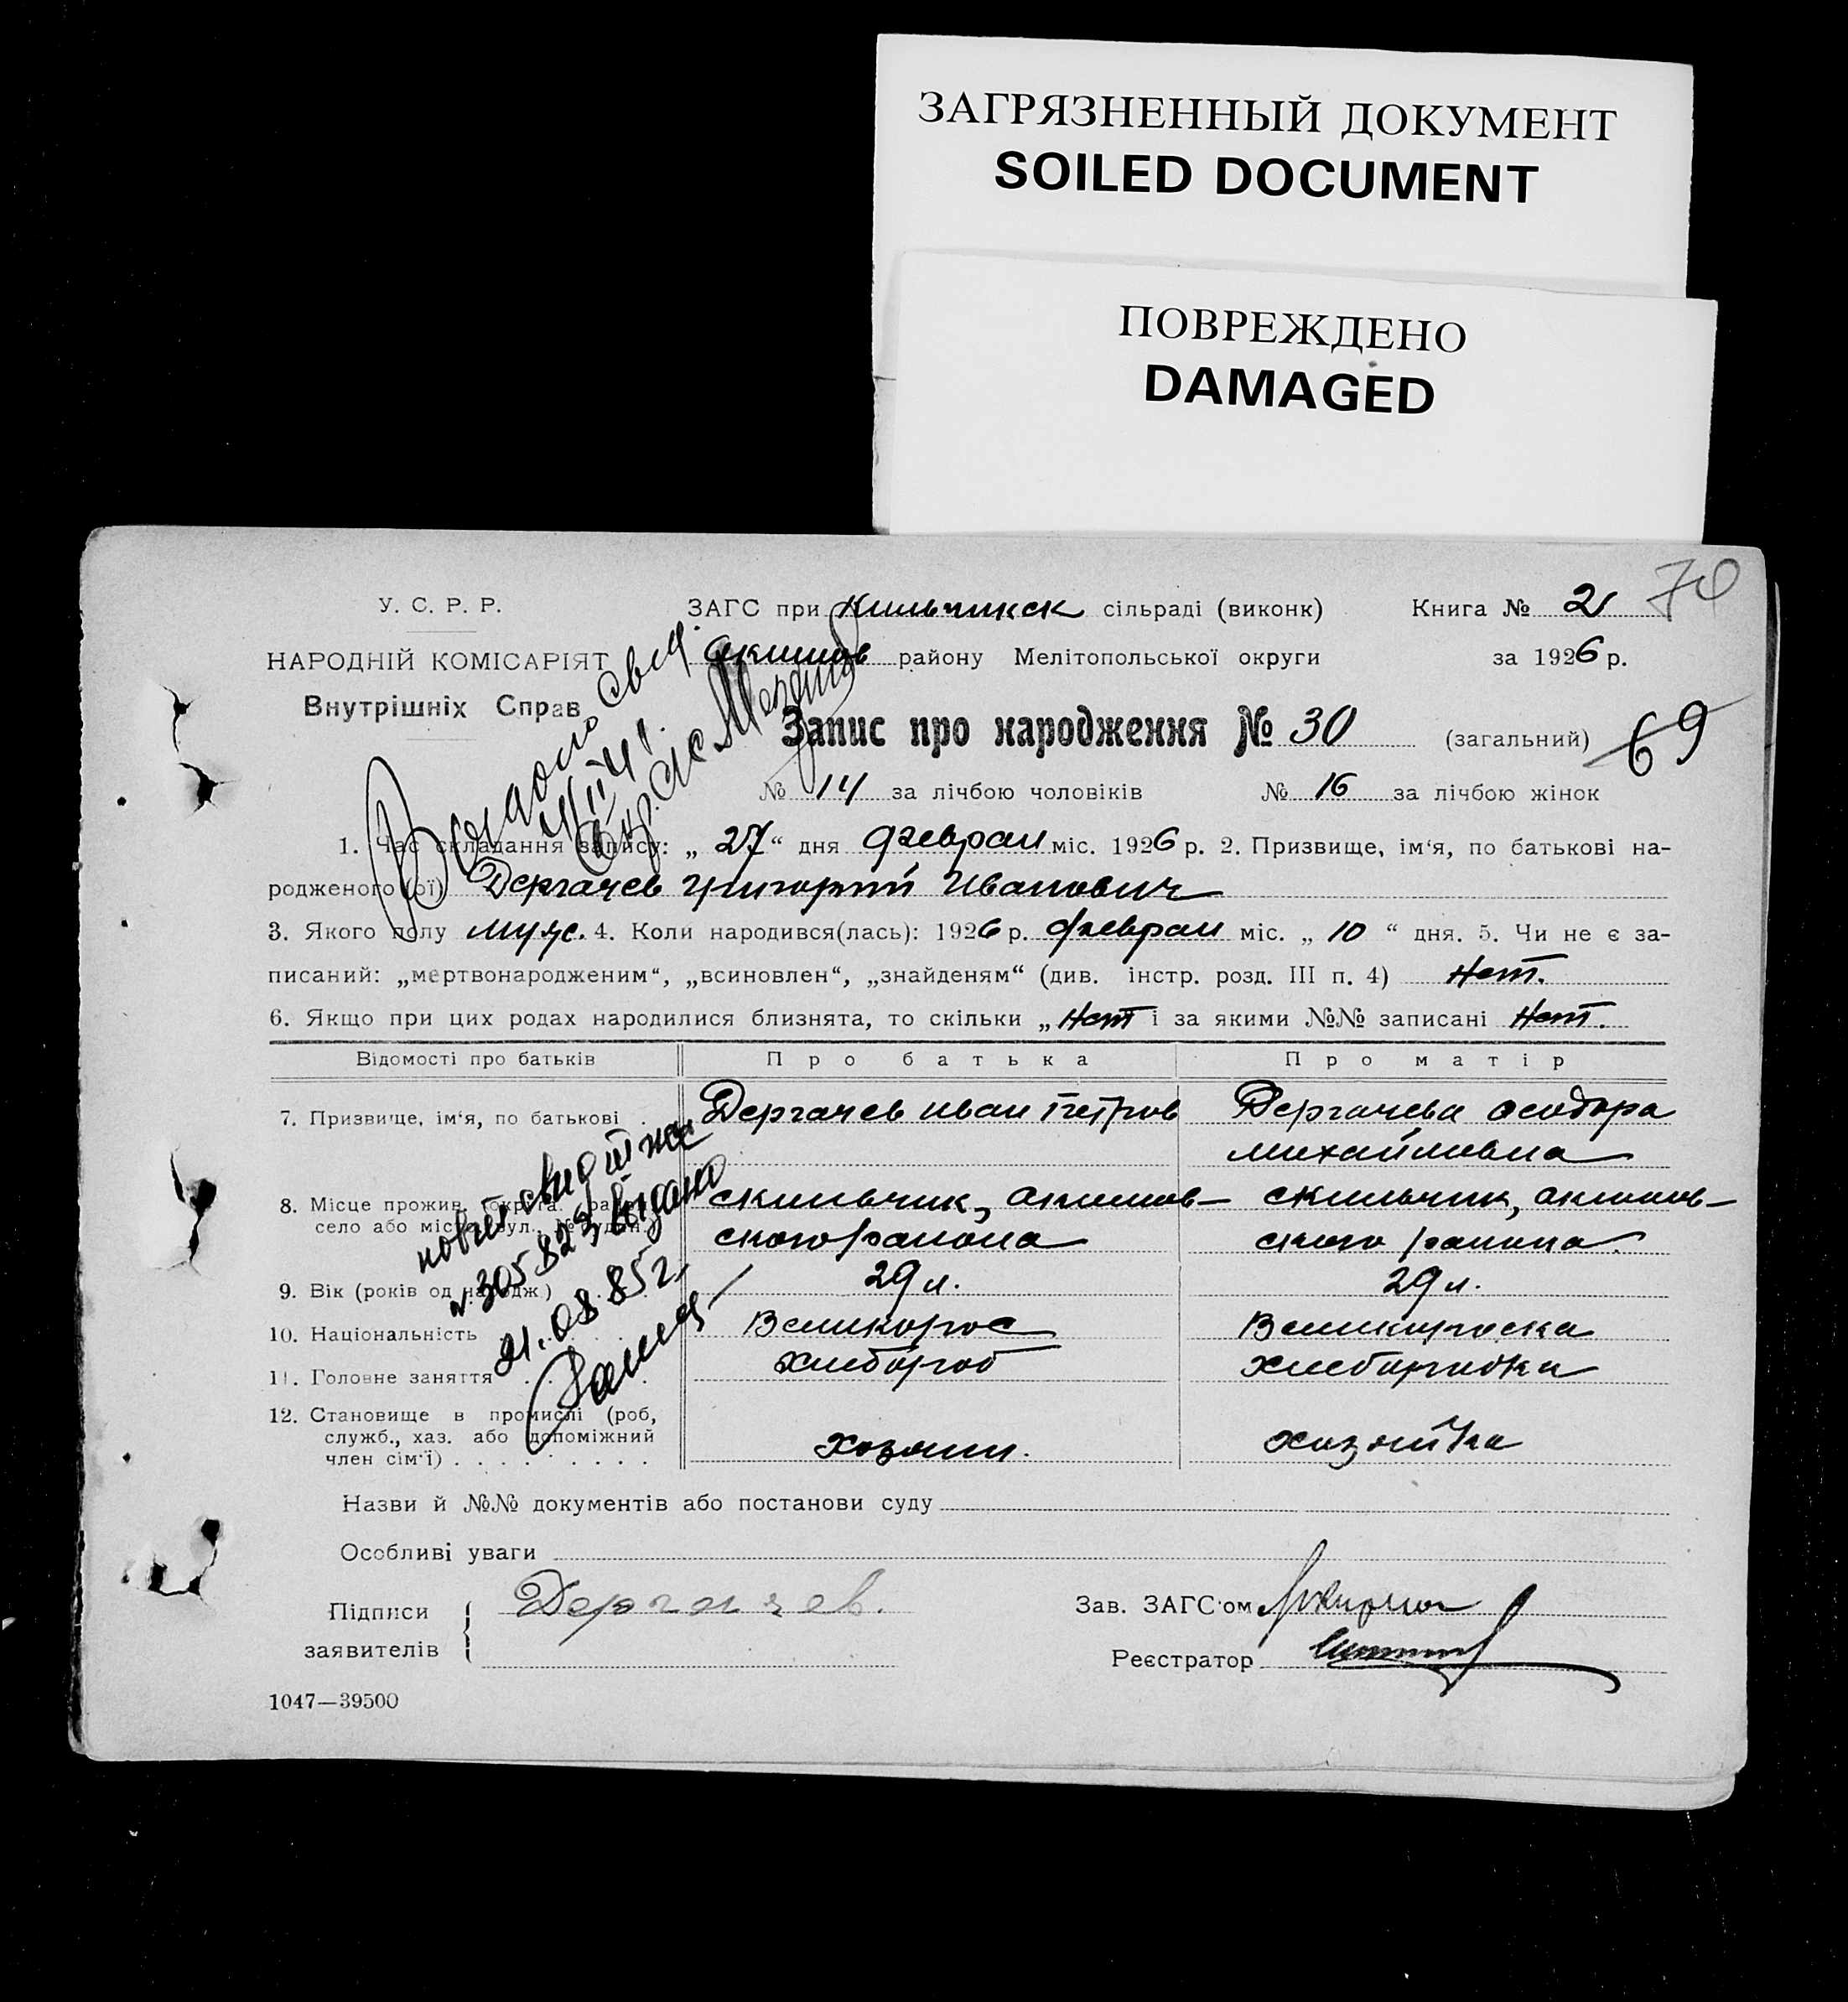 ЗАГРЯЗНЕННЫЙ ДОКУМЕНТ
SOILED DOCUMENT
ПОВРЕЖДЕНО
DAMAGED
70
У. С. Р. Р.
НАРОДНІЙ КОМІСАРІЯТ
Внутрішніх Справ
ЗАГС при Кильчикск сільраді (виконк) Книга № 2
Акимов району Мелітопольської округи за 1926 р.
Запис про народження № 30 (загальний) 69
№ 14 за лічбою чоловіків № 16 за лічбою жінок
1. Час складання запису: „ 27 “ дня феврал міс. 1926 р. 2. Призвище, ім‘я, по батькові на-
родженого(ої) Дергачев Григорий Иванович
3. Якого полу муж. 4. Коли народився(лась): 1926 р. феврал міс. „ 10 “ дня. 5. Чи не є за-
писаний: „мертвонародженим“, „всиновлен“, „знайденям“ (див. інстр. розд. III п. 4) Нет.
6. Якщо при цих родах народилися близнята, то скільки „ Нет і за якими №№ записані Нет.
Відомості про батьків Про батька Про матір
7. Призвище, ім‘я, по батькові Дергачев Иван Петров Дергачева Феодора
Михайловна
8. Місце прожив. округа, село або місто, вул. с Кильчик, Акимов- с Кильчик, Акимов-
ского района ского района.
9. Вік (років од народж) 29 л. 29 л.
10. Національність Великорос Великороска
11. Головне заняття хлебороб хлеборобка
12. Становище в промислі (роб,
служб., хаз. або допоміжний
член сім‘ї) хозяин. хозяйка
новое свид
№ 305823 выдано
21.08.85 г.
Назви й №№ документів або постанови суду
Особливі уваги
Підписи
заявителів
Дергачев.
Зав. ЗАГС‘ом
Реєстратор
1047—39500